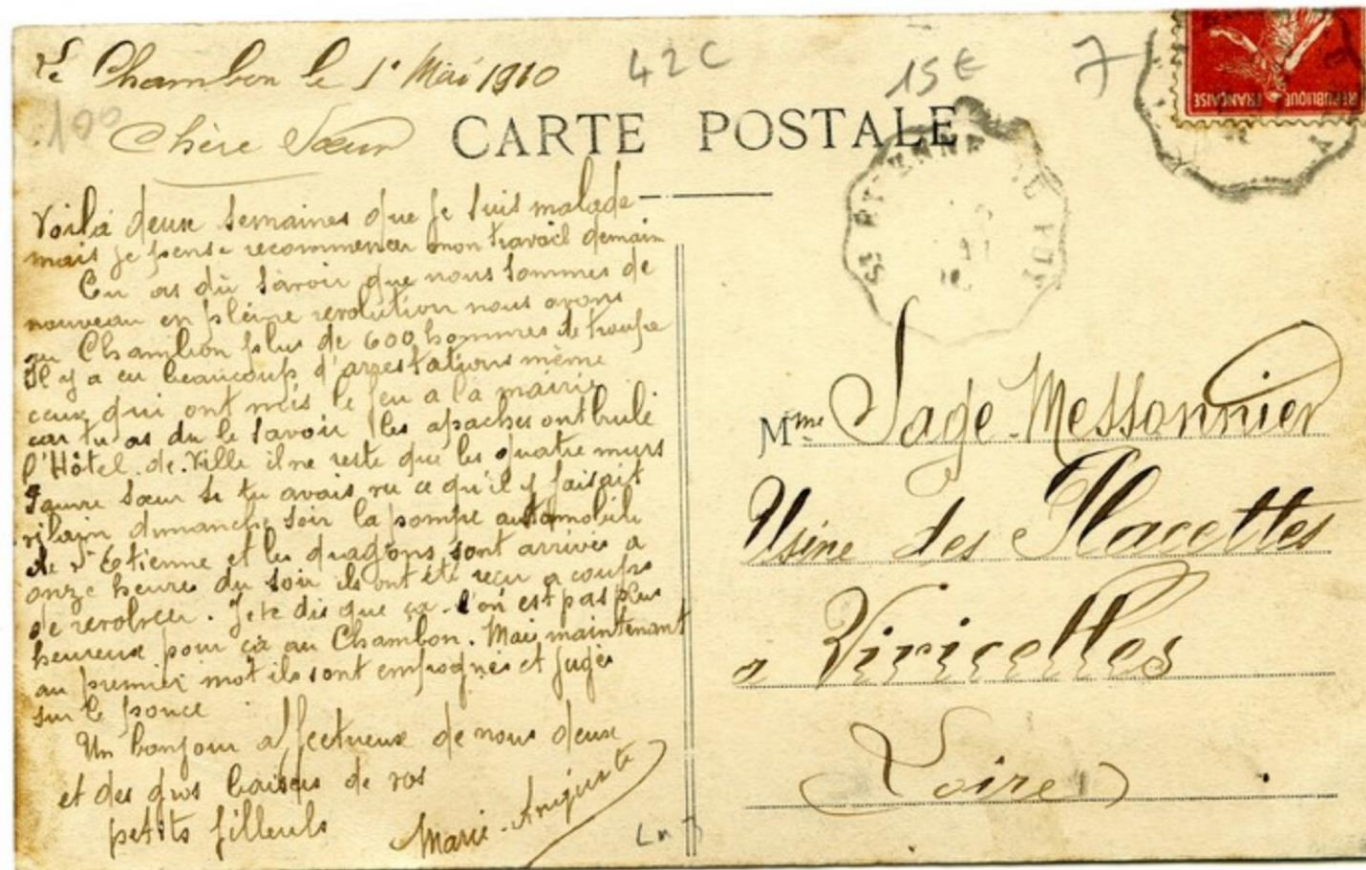 Le Chambon le 1er Mai 1910
42C
15€
7
100
Chère Sœur
CARTE POSTALE
REPUBLIQUE FRANÇAISE
Voilà deux semaines que je suis malade
mais je pense recommencer mon travail demain
Tu as dû savoir que nous sommes de
nouveau en pleine revolution nous avons
au Chambon plus de 600 hommes de troupe
Il y a eu beaucoup d'arrestations même
ceux qui ont mis le feu a la mairie
car tu as du le savoir les apaches ont brulé
l'Hôtel de Ville il ne reste que les quatre murs
Pauvre sœur si tu avais vu ce qu'il y faisait
vilain dimanche soir la pompe automobile
de St Etienne et les dragons sont arrivés a
onze heures du soir ils ont été reçu a coups
de revolver. Je te dis que ça. l'on est pas plus
heureux pour ça au Chambon. Mai maintenant
au premier mot ils sont empognés et jugés
sur le pouce
Un bonjour affectueux de nous deux
et des gros baisers de vos
petits filleuls
Marie-
St ETIENNE
Mme Sage-Messonnier
Usine des Placettes
a Viricelles
Loire